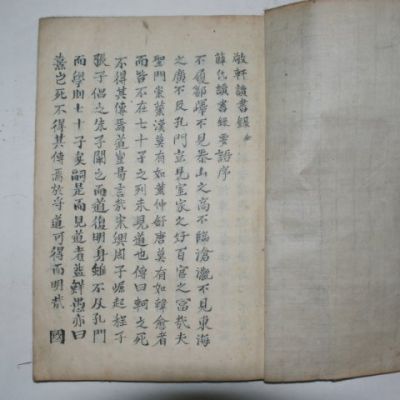 敬軒讀書錄
薛氏讀書錄要語序
不履鄒嶧不見泰山之高不臨滄瀛不見東海
之廣不及孔門豈見室家之好百官之富哉夫
聖門業董漢莫有如董仲舒唐莫有如韓愈者
而皆不在七十子之列未見道也傳曰軻之死
不得其傳焉道豈易言哉宋興周子崛起程子
張子倡之朱子闡之而道復明身雖不及孔門
而學則七十子矣嗣是而見道者益鮮愚亦曰
熹之死不得其傳焉於乎道可得而明哉 國